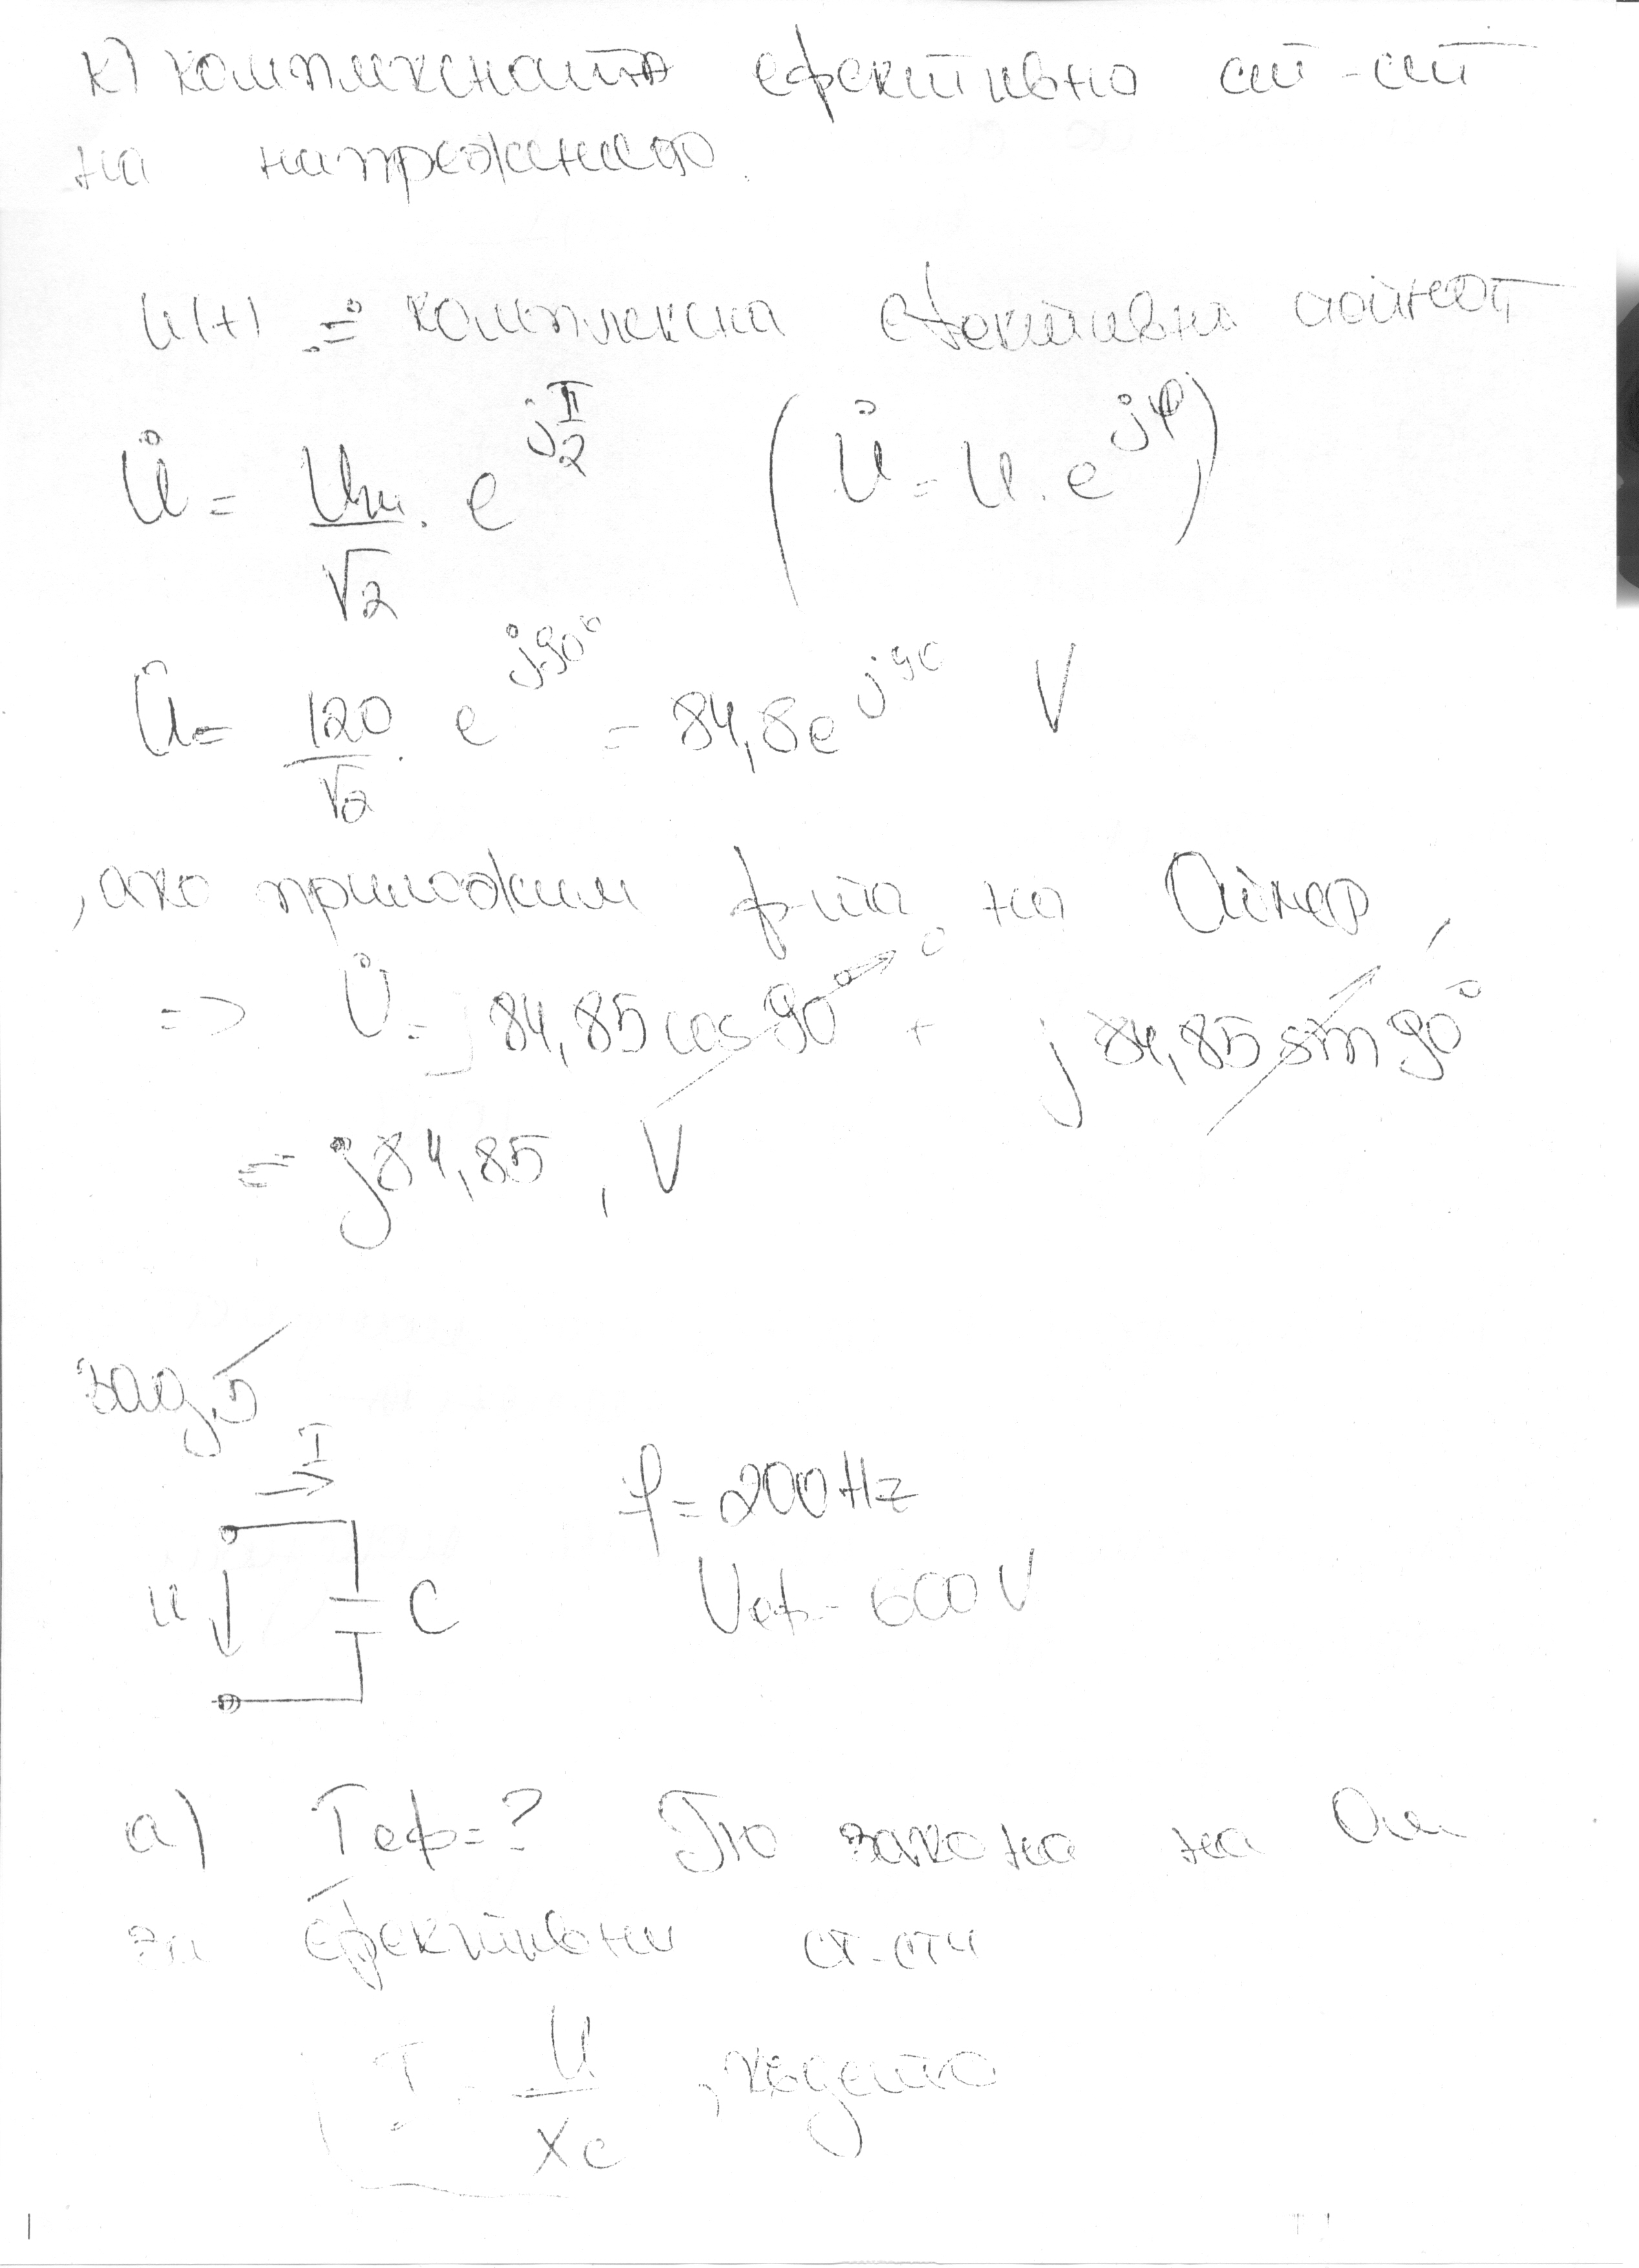 к) комплексната ефективна ст-ст
на напрежението.
u(t) ≓ комплексна ефективна стойност
U̇ = Um/√2 . e^(jπ/2) (U̇ = U . e^(jφ))
U̇ = 120/√2 . e^(j90°) = 84,8e^(j90) V
, ако приложим ф-та на Ойлер,
=> U̇ = 84,85 cos 90° → 0 + j 84,85 sin 90° → 1
= j84,85, V
зад.5
I
f = 200 Hz
u C Uеф = 600 V
а) Iеф = ? По закона на Ом
за ефективни ст-сти
I = U/Xc , където